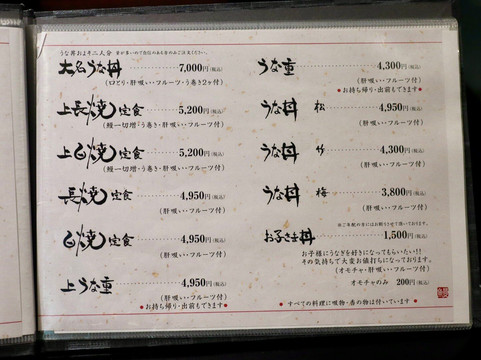 うな丼およそ二人分
大名うな丼 ……… 7,000円(税込)
(口とり・肝吸い・フルーツ・う巻き2ヶ付)
上長焼定食 ……… 5,200円(税込)
(鰻一切増・う巻き・肝吸い・フルーツ付)
上白焼定食 ……… 5,200円(税込)
(鰻一切増・う巻き・肝吸い・フルーツ付)
長焼定食 ……… 4,950円(税込)
(肝吸い・フルーツ付)
白焼定食 ……… 4,950円(税込)
(肝吸い・フルーツ付)
上うな重 ……… 4,950円(税込)
(肝吸い・フルーツ付)
●お持ち帰り・出前もできます●
うな重 ……… 4,300円(税込)
(肝吸い・フルーツ付)
●お持ち帰り・出前もできます●
うな丼 松 ……… 4,950円(税込)
(肝吸い・フルーツ付)
うな丼 竹 ……… 4,300円(税込)
(肝吸い・フルーツ付)
うな丼 梅 ……… 3,800円(税込)
(肝吸い・フルーツ付)
お子さま丼 ……… 1,500円(税込)
お子様にうなぎを好きになってもらいたい!!
その気持ちで大変お値打ちになっております。
(オモチャ・肝吸い・フルーツ付)
オモチャのみ 200円(税込)
●すべての料理に吸物・香の物は付いています●